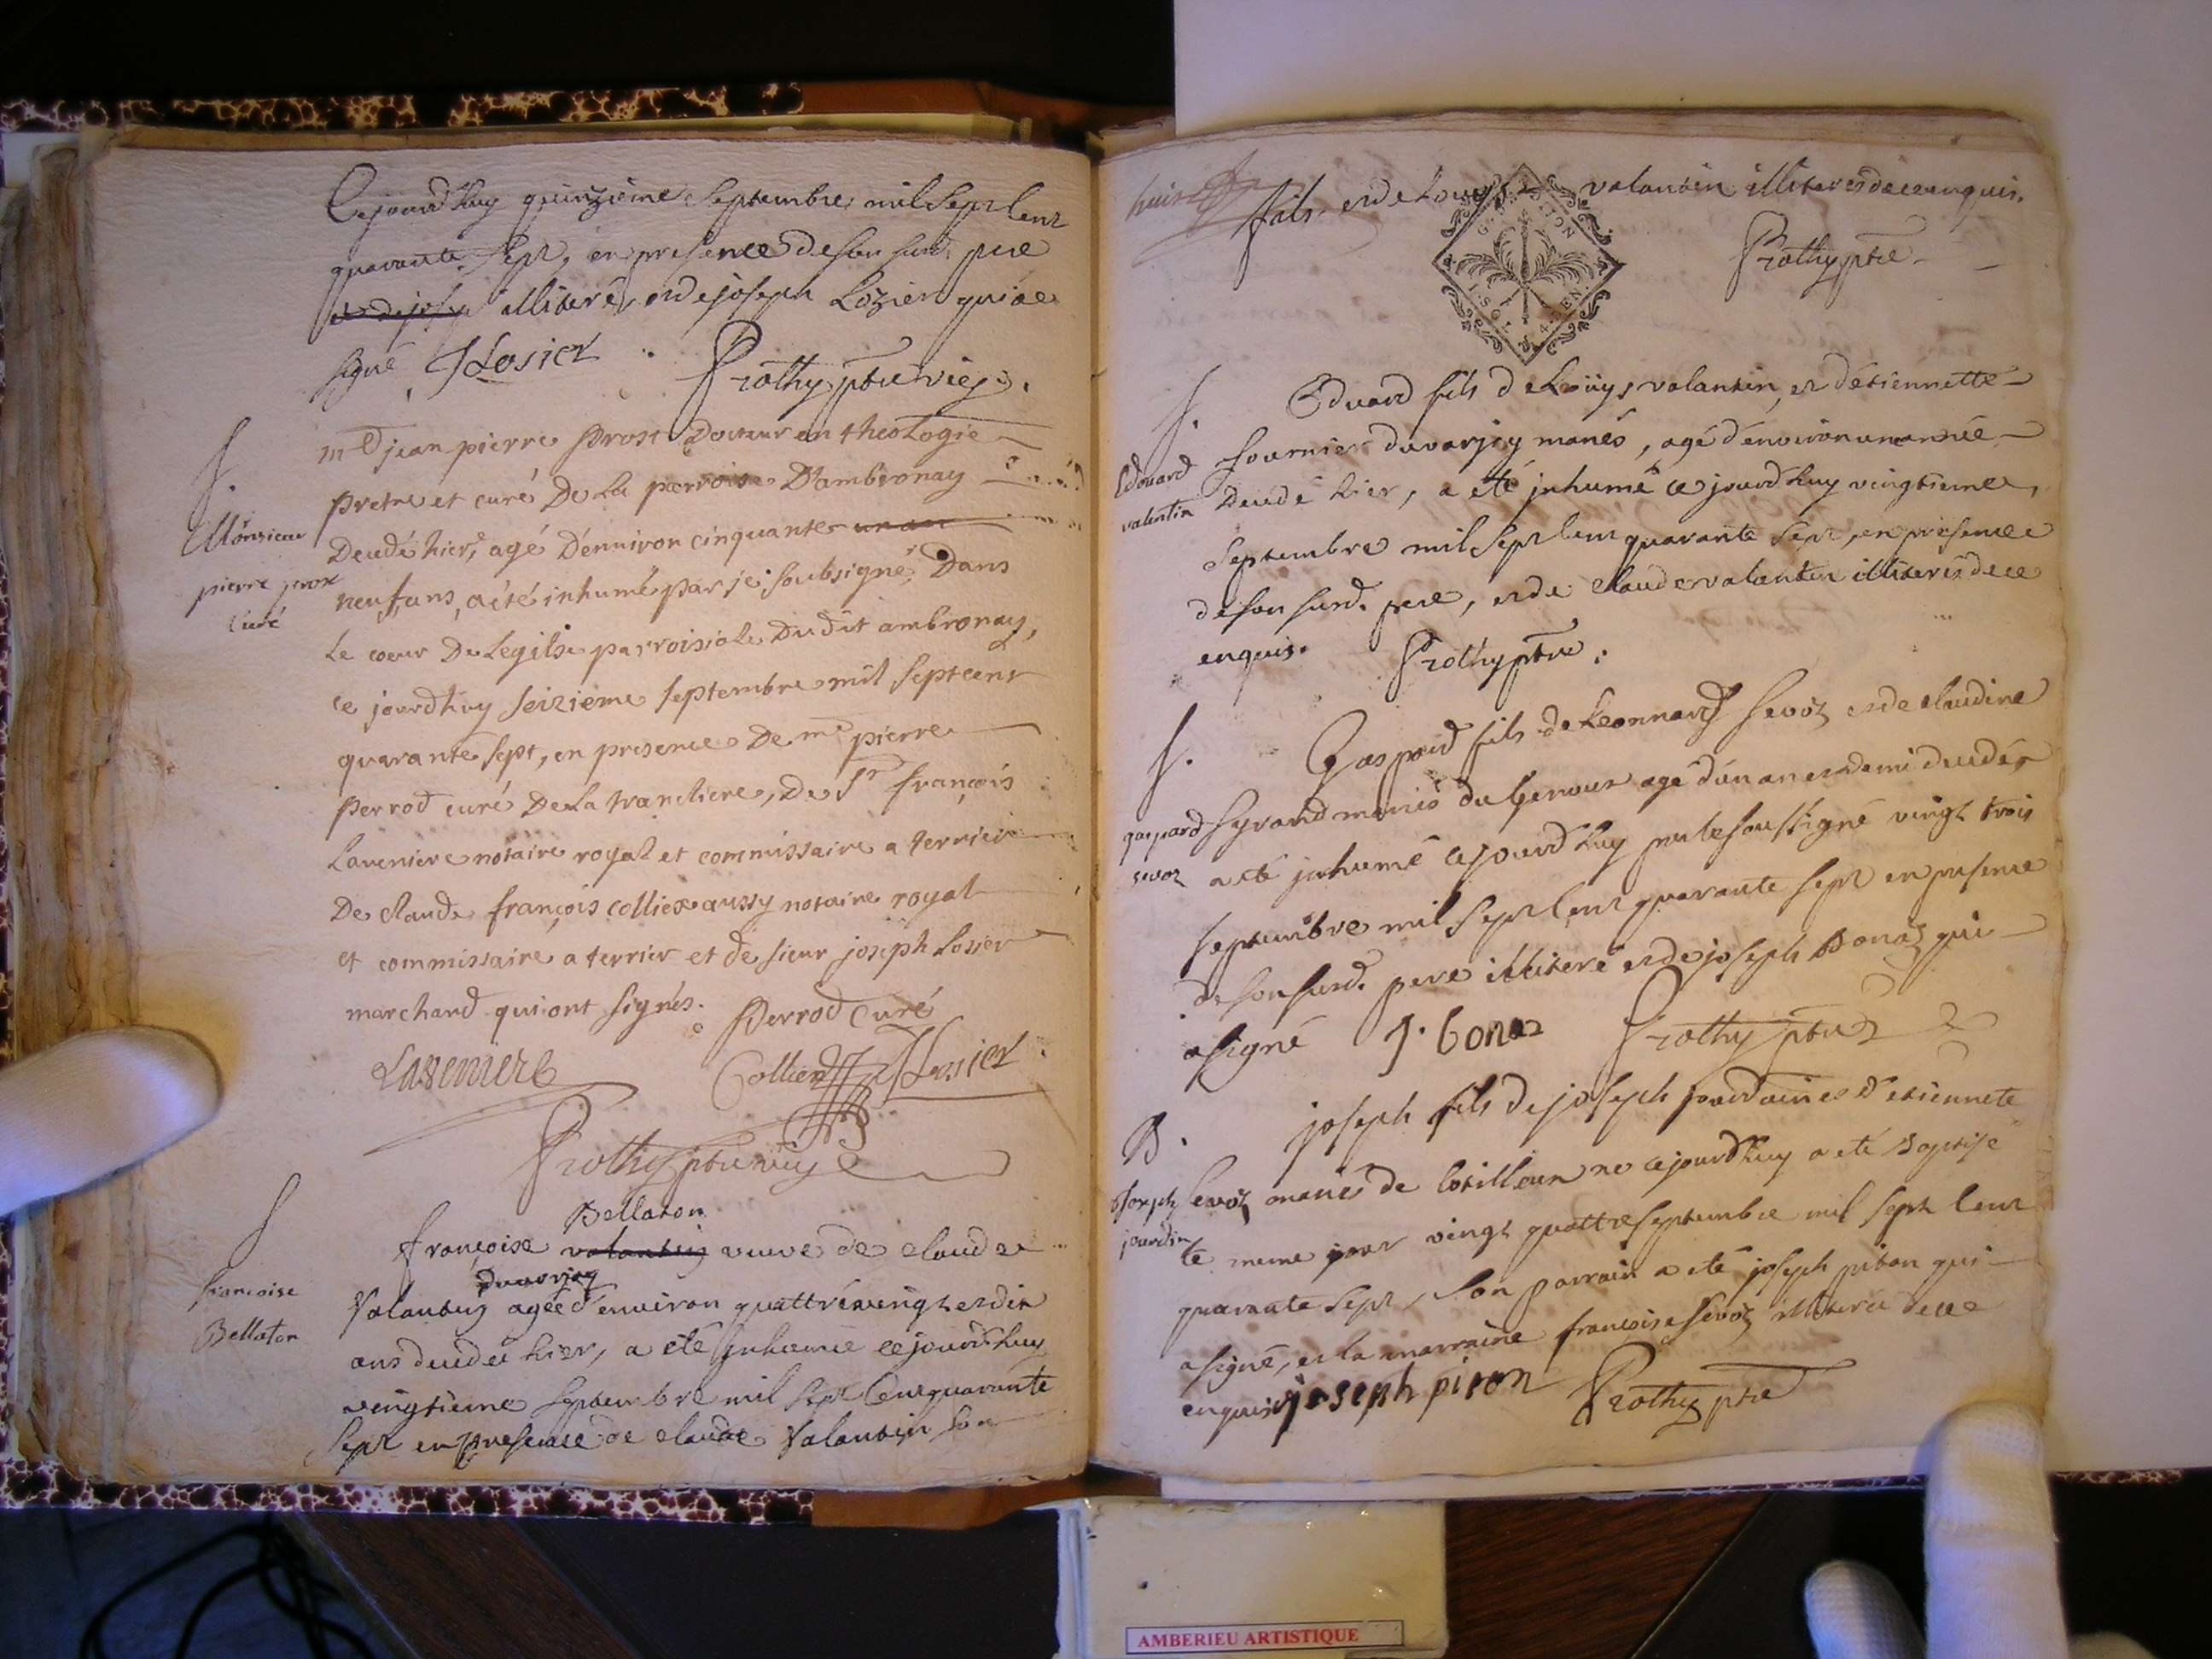 Cejourd'huy quinzième Septembre mil Sept Cent
quarante Sept, en presence de son susd. pere
et de josep illiteré, et de joseph Lozier qui a
signé JLosier Prothy ptre vic.
S.
Monsieur
pierre prox
Curé
mre jean pierre Prost Docteur en theologie
Pretre et curé De La parroise D'ambronay
Decedé hier, agé D'environ cinquante un an
neuf ans, a été inhumé par je soubsigné, Dans
Le coeur De Legilse parroisiale Dudit ambronay,
ce jourdhuy Seizieme Septembre mil Septcent
quarante sept, en presence De mre pierre
Perrod curé De La tranclière, De Sr françois
Laveniere notaire royal et commissaire a terrier
De claude françois colliex aussy notaire royal
et commissaire a terrier et de sieur joseph Losier
marchand qui ont signés. Perrod Curé
Laveniere Colliex JLosier
Prothy ptre vic
S
francoise
Bellaton
Bellaton
françoise valantin veuve de claude
duvorjey
Valantin agée d'environ quattrevingt et dix
ans decedée hier, a eté inhumée cejourd'huy
vingtieme Septembre mil Sept Cent quarante
Sept en presence de claude Valantin son
huit
fils et de Louys valantin illiteres de ce enquis.
Prothy ptre
G ALENÇON
S.
Edouard
valentin
Eduard fils de Loüys valantin, et d'etiennette
fournier duvorjey mariés, agé d'environ un année
Decedé hier, a eté inhumé ce jourd'huy vingtieme
Septembre mil Sept Cent quarante Sept, en presence
de son susd. pere, et de claude valantin illiterés de ce
enquis. Prothy ptre.
S.
gaspard
sevoz
Gaspard fils de Leonnard Sevoz et de claudine
Syrand mariés du genoux agé d'un an et demi decedé
a eté inhumé cejourd'huy par le soussigné vingt trois
septembre mil Sept Cent quarante Sept en presence
de son susd. pere illiteré et de joseph Bonaz qui
a signé J. bonaz Prothy ptre
B.
Joseph
jourdin
joseph fils de joseph jourdain et d'etiennete
Sevoz mariés de Cotilleun né cejourd'huy a eté Baptisé
le meme jour vingt quattre septembre mil Sept Cent
quarante Sept, Son parrain a eté joseph piton qui
a signé, et la marraine françoise Sevoz illiterée de ce
enquise joseph piton Prothy ptre
AMBERIEU ARTISTIQUE